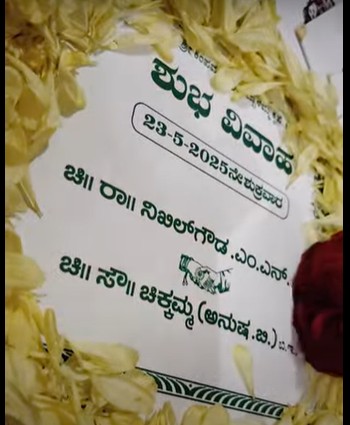 ಶುಭ ವಿವಾಹ
23-5-2025ನೇ ಶುಕ್ರವಾರ
ಚಿ|| ರಾ|| ನಿಖಿಲ್‌ಗೌಡ .ಎಂ.ಎನ್.
ಚಿ|| ಸೌ|| ಚಿಕ್ಕಮ್ಮ (ಅನುಷ .ಬಿ.)